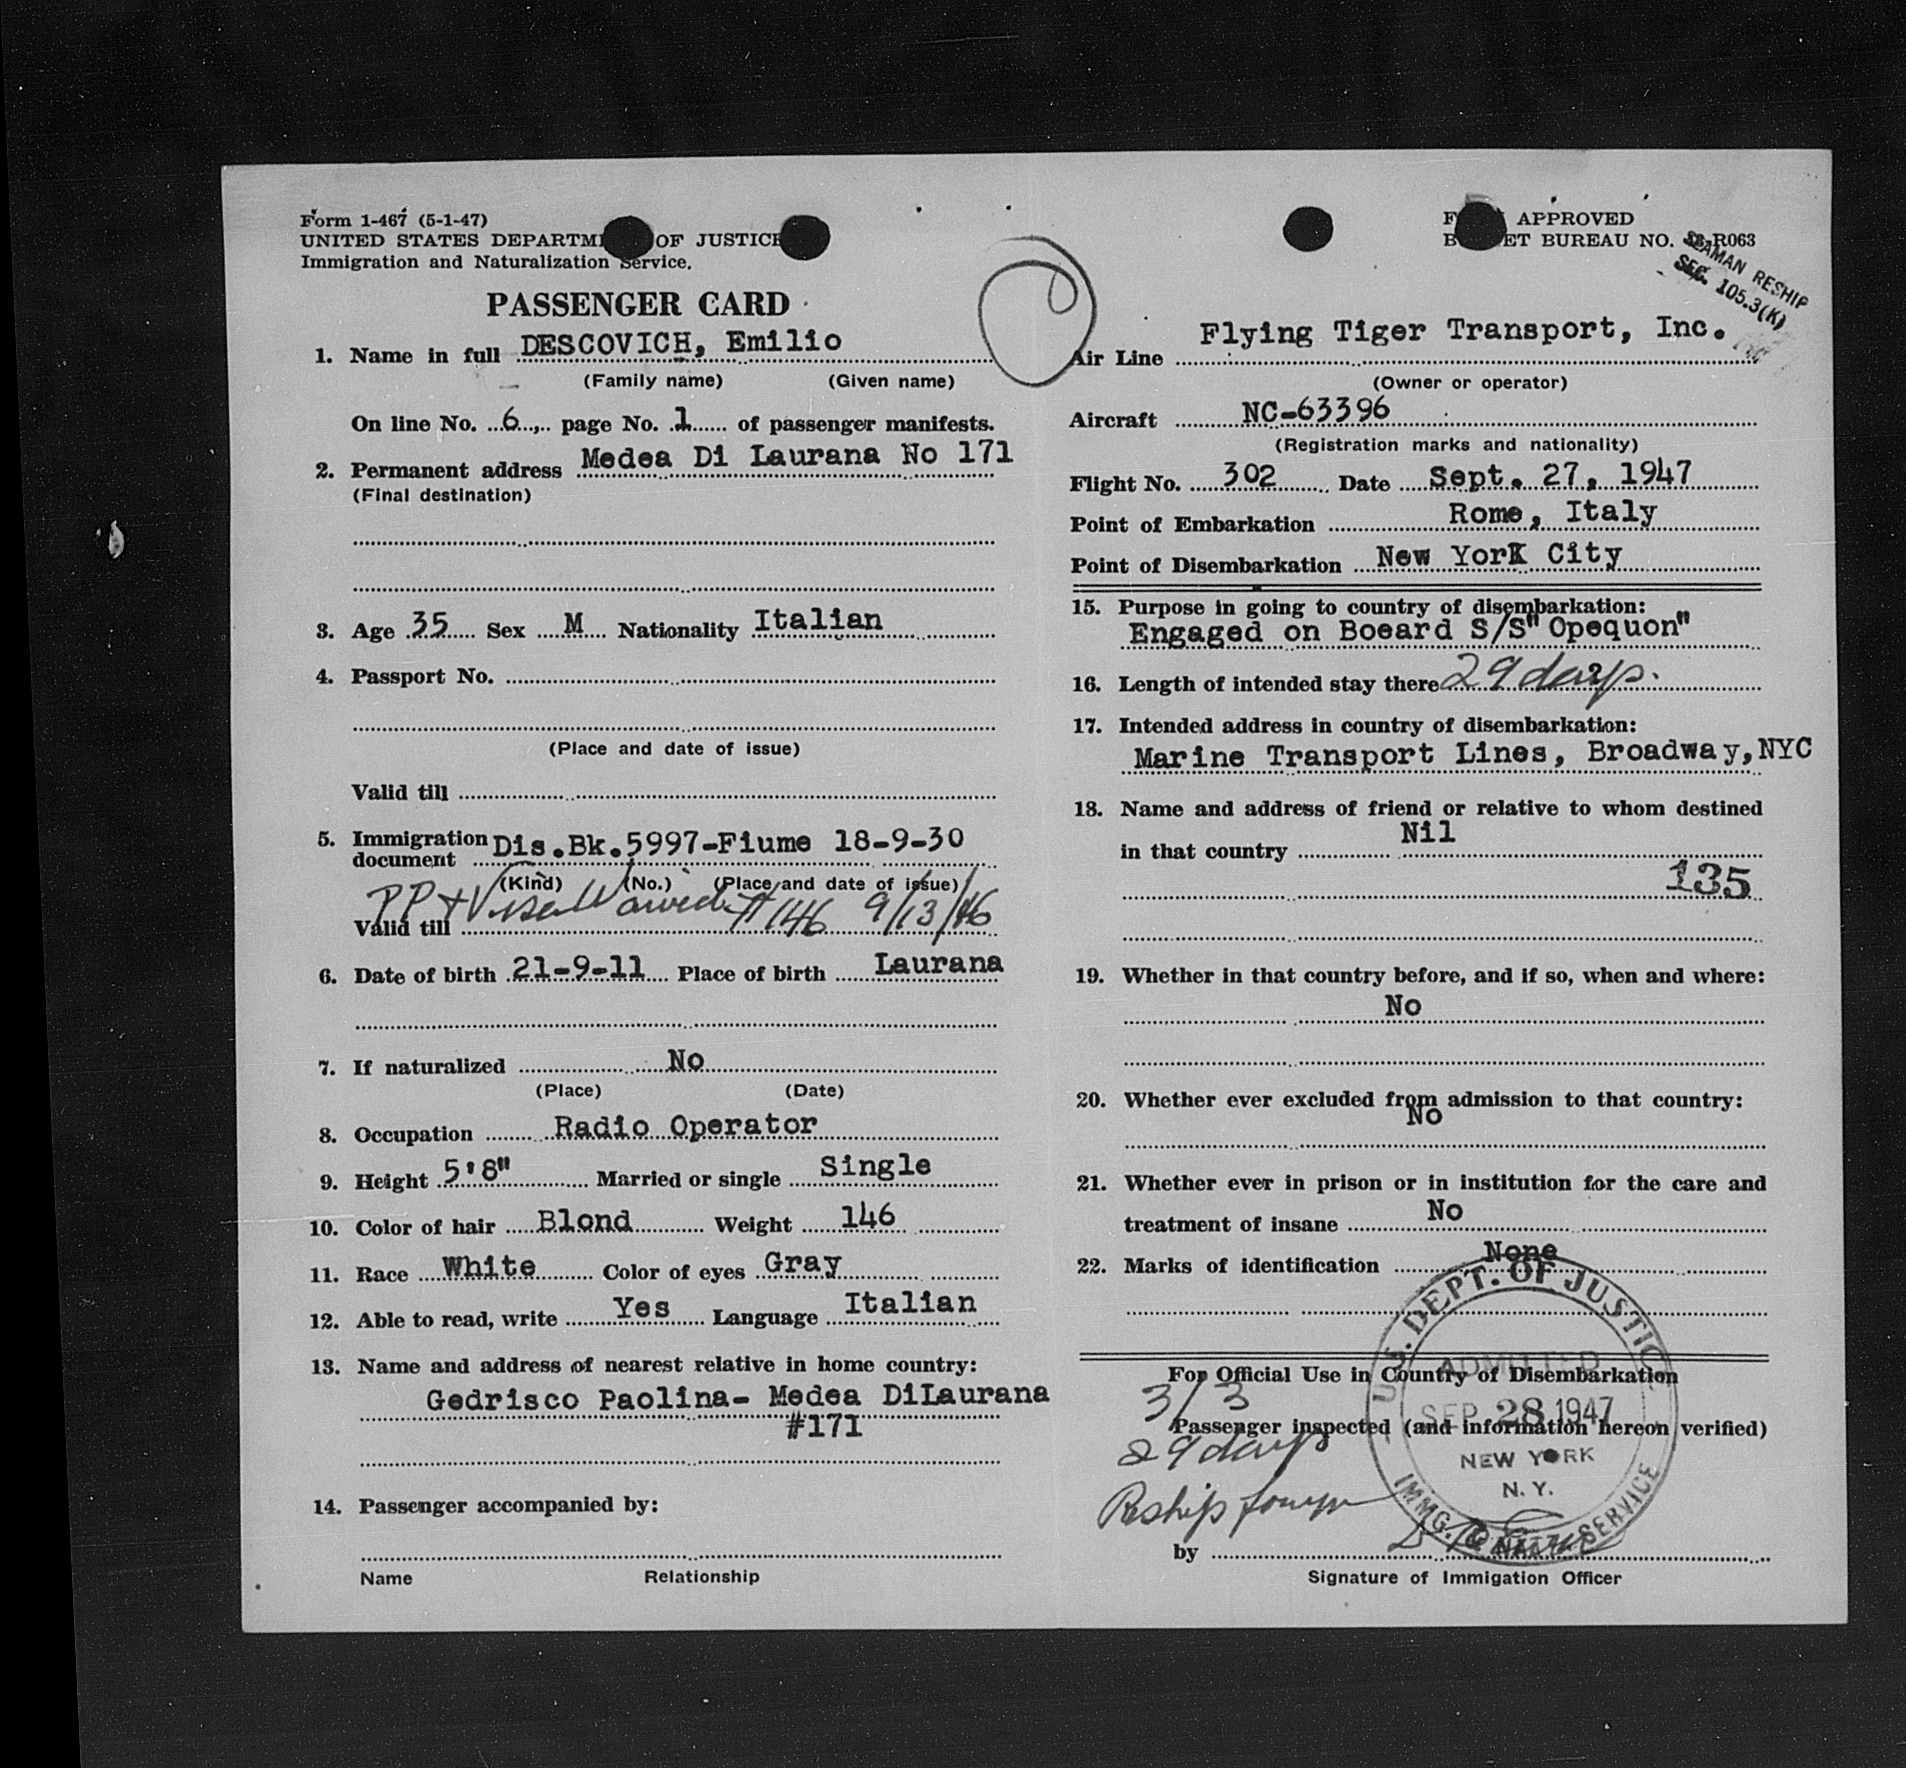 Form 1-467 (5-1-47)
UNITED STATES DEPARTM OF JUSTICE
Immigration and Naturalization Service.
PASSENGER CARD
1. Name in full DESCOVICH, Emilio
(Family name) (Given name)
On line No. 6 page No. 1 of passenger manifests.
2. Permanent address Medea Di Laurana No 171
(Final destination)
3. Age 35 Sex M Nationality Italian
4. Passport No.
(Place and date of issue)
Valid till
5. Immigration document Dis.Bk.5997-Fiume 18-9-30
(Kind) (No.) (Place and date of issue)
PP + Visa Waived # 146 9/13/46
Valid till
6. Date of birth 21-9-11 Place of birth Laurana
7. If naturalized No
(Place) (Date)
8. Occupation Radio Operator
9. Height 5'8" Married or single Single
10. Color of hair Blond Weight 146
11. Race White Color of eyes Gray
12. Able to read, write Yes Language Italian
13. Name and address of nearest relative in home country:
Gedrisco Paolina- Medea DiLaurana
#171
14. Passenger accompanied by:
Name Relationship
APPROVED
ET BUREAU NO. R063
SEAMAN RESHIP
SEC. 105.3(K)
Flying Tiger Transport, Inc.
Air Line
(Owner or operator)
Aircraft NC-63396
(Registration marks and nationality)
Flight No. 302 Date Sept. 27, 1947
Point of Embarkation Rome, Italy
Point of Disembarkation New York City
15. Purpose in going to country of disembarkation:
Engaged on Boeard S/S" Opequon"
16. Length of intended stay there 29 days.
17. Intended address in country of disembarkation:
Marine Transport Lines, Broadway,NYC
18. Name and address of friend or relative to whom destined
in that country Nil
135
19. Whether in that country before, and if so, when and where:
No
20. Whether ever excluded from admission to that country:
No
21. Whether ever in prison or in institution for the care and
treatment of insane No
22. Marks of identification None
U.S. DEPT. OF JUSTICE
ADMITTED
For Official Use in Country of Disembarkation
3/3
SEP 28 1947
Passenger inspected (and information hereon verified)
29 days
NEW YORK
N. Y.
Reship
IMMG. & NAT'Z. SERVICE
by
Signature of Immigation Officer